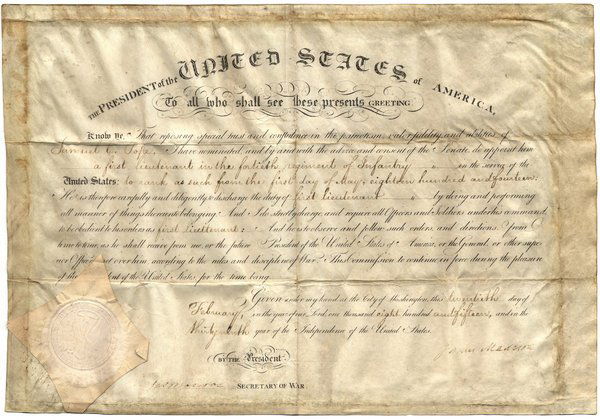 THE PRESIDENT of the UNITED STATES of AMERICA,
To all who shall see these presents GREETING
Know Ye, That reposing special trust and confidence in the patriotism, valor, fidelity, and abilities of
Samuel I have nominated, and by and with the advice and consent of the Senate, do appoint him
a first lieutenant in the fortieth regiment of Infantry in the service of the
United States: to rank as such from the first day of May, eighteen hundred and fourteen.
He is therefore carefully and diligently to discharge the duty of first lieutenant by doing and performing
all manner of things thereunto belonging. And I do strictly charge, and require all Officers and Soldiers under his command
to be obedient to his orders as first lieutenant: And he is to observe and follow such orders, and directions, from
time to time, as he shall receive from me, or the future President of the United States of America, or the General, or other superior
Officers set over him according to the rules and discipline of War. This Commission to continue in force during the pleasure
of the President of the United States for the time being.
Given under my hand at the City of Washington, this twentieth day of
February, in the year of our Lord one thousand eight hundred and fifteen, and in the
thirty year of the Independence of the United States.
BY the President
James Madison
SECRETARY OF WAR.